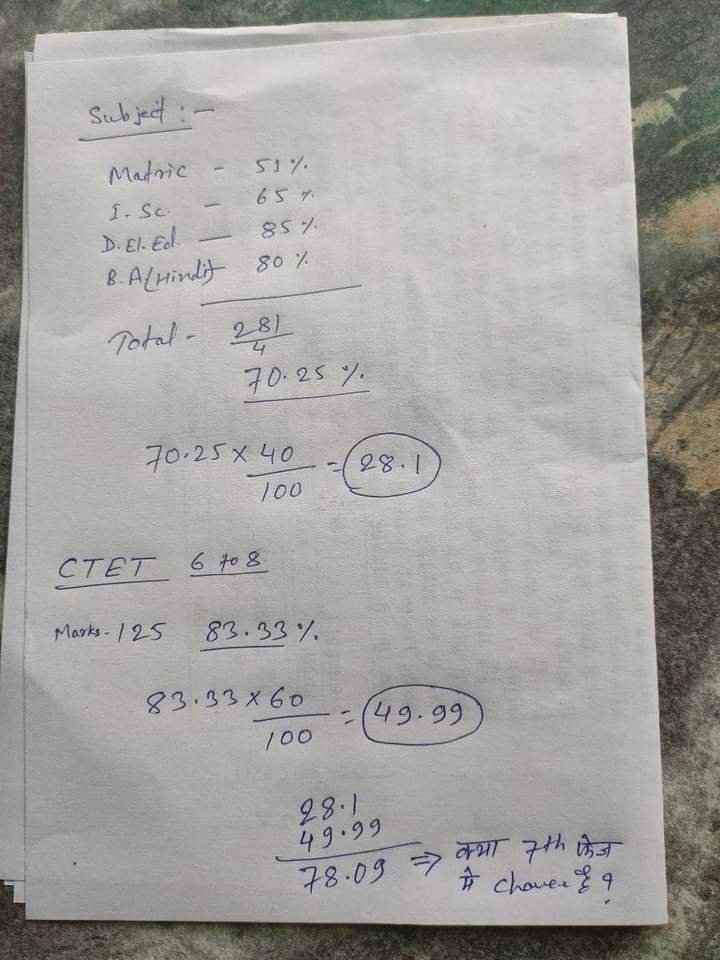 Subject :-
Matric - 51 %.
I. Sc. - 65 %.
D. El. Ed. - 85 %.
B. A (Hindi) 80 %.
Total - 281/4
70.25 %.
70.25 × 40/100 = 28.1
CTET 6 to 8
Marks - 125 83.33 %.
83.33 × 60/100 = 49.99
28.1
49.99
78.09 ⇒ क्या 7th फेज
में chance है ?